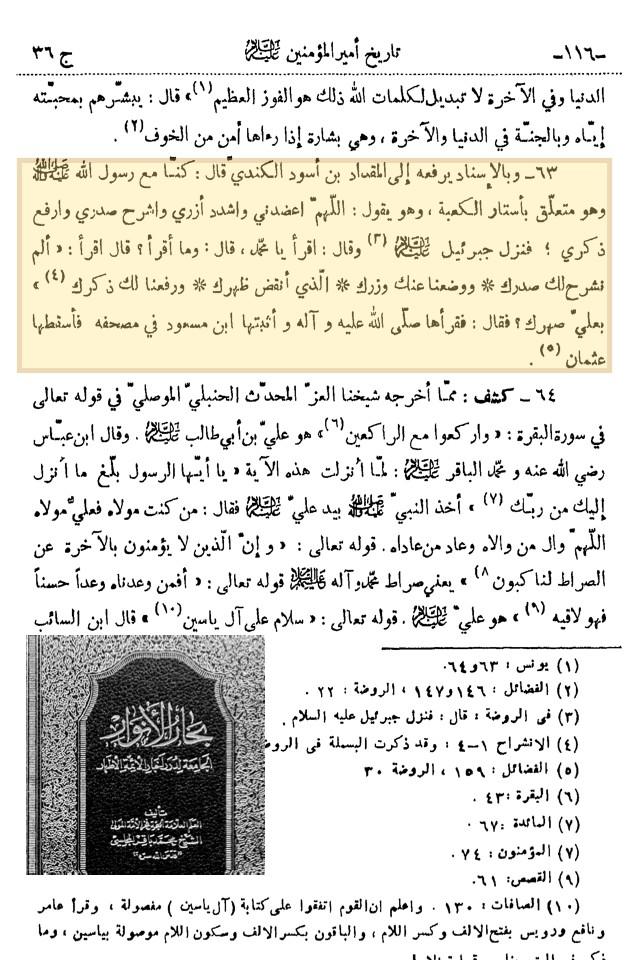 -١١٦-
تاريخ أمير المؤمنين عليه السلام
ج ٣٦
الدنيا وفي الآخرة لا تبديل لكلمات الله ذلك هو الفوز العظيم (١)» قال : يبشّرهم بمحبّته
إيّاه وبالجنّة في الدنيا والآخرة ، وهي بشارة إذا رءاها أمن من الخوف (٢) .
٦٣ـ وبالإسناد يرفعه إلى المقداد بن أسود الكنديّ قال : كنّا مع رسول الله ﷺ
وهو متعلّق بأستار الكعبة ، وهو يقول : اللّهمّ اعضدني واشدد أزري واشرح صدري وارفع
ذكري ؛ فنزل جبرئيل عليه السلام (٣) وقال : اقرأ يا محمّد ، قال : وما أقرأ ؟ قال اقرأ : « ألم
نشرح لك صدرك * ووضعنا عنك وزرك * الّذي أنقض ظهرك * ورفعنا لك ذكرك (٤) »
بعليّ صهرك ؟ فقال : فقرأها صلّى الله عليه و آله و أثبتها ابن مسعود في مصحفه فأسقطها
عثمان (٥) .
٦٤ ـ كشف : ممّا أخرجه شيخنا العزّ المحدّث الحنبليّ الموصليّ في قوله تعالى
في سورة البقرة : « واركعوا مع الراكعين (٦)» هو عليّ بن أبي طالب عليه السلام . وقال ابن عبّاس
رضي الله عنه و محمّد الباقر عليه السلام : لمّا أنزلت هذه الآية « يا أيّها الرسول بلّغ ما أنزل
إليك من ربّك (٧) » أخذ النبيّ ﷺ بيد عليّ عليه السلام فقال : من كنت مولاه فعليّ مولاه
اللّهمّ وال من والاه وعاد من عاداه . قوله تعالى : « و إنّ الّذين لا يؤمنون بالآخرة عن
الصراط لناكبون (٨)» يعني صراط محمّد وآله عليهم السلام قوله تعالى : « أفمن وعدناه وعداً حسناً
فهو لاقيه (٩) » هو عليّ عليه السلام . قوله تعالى : « سلام على آل ياسين (١٠) » قال ابن السائب
(١) يونس : ٦٣و٦٤.
(٢) الفضائل : ١٤٦و١٤٧ ، الروضة : ٢٢ .
(٣) فى الروضة : قال : فنزل جبرئيل عليه السلام .
(٤) الانشراح ١-٤ : وقد ذكرت البسملة فى
(٥) الفضائل : ١٥٩ ، الروضة ٣٠
(٦) البقرة : ٤٣ .
(٧) المائدة : ٦٧ .
(٧) المؤمنون : ٧٤ .
(٩) القصص : ٦١.
(١٠) الصافات : ١٣٠ . واعلم ان القوم اتفقوا على كتابة ( آل ياسين ) مفصولة ، وقرأ عامر
ونافع ورويس بفتح الالف وكسر اللام ، والباقون بكسر الالف وسكون اللام موصولة بياسين ، وما
بحار الأنوار
الجامعة لدرر أخبار الأئمة الأطهار
تأليف